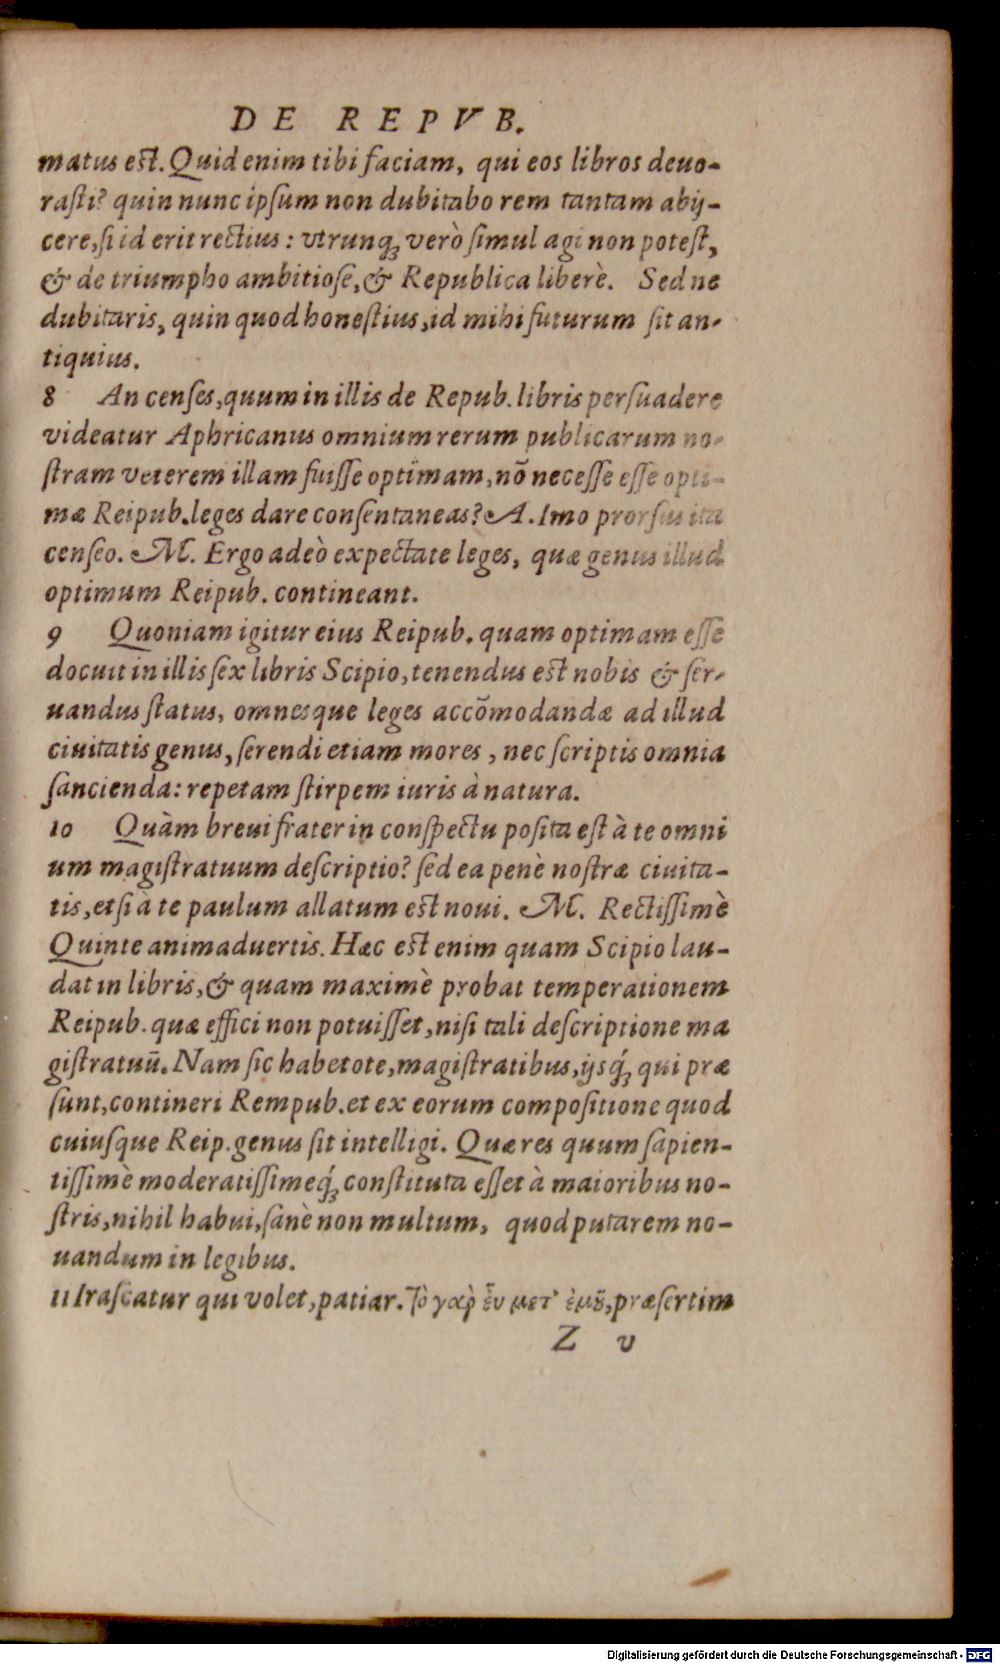 DE REPVB.
matus est. Quid enim tibi faciam, qui eos libros deuo-
rasti? quin nunc ipsum non dubitabo rem tantam abij-
cere, si id erit rectius: vtrunq́; verò simul agi non potest,
& de triumpho ambitiose, & Republica liberè. Sed ne
dubitaris, quin quod honestius, id mihi futurum sit an-
tiquius.
8 An censes, quum in illis de Repub. libris persuadere
videatur Aphricanus omnium rerum publicarum no-
stram veterem illam fuisse optimam, nō necesse esse opti-
mæ Reipub. leges dare consentaneas? A. Imo prorsus ita
censeo. M. Ergo adeò expectate leges, quæ genus illud
optimum Reipub. contineant.
9 Quoniam igitur eius Reipub. quam optimam esse
docuit in illis sex libris Scipio, tenendus est nobis & ser-
uandus status, omnesque leges accōmodandæ ad illud
ciuitatis genus, serendi etiam mores, nec scriptis omnia
sancienda: repetam stirpem iuris à natura.
10 Quàm breui frater in conspectu posita est à te omni
um magistratuum descriptio? sed ea penè nostræ ciuita-
tis, etsi à te paulum allatum est noui. M. Rectissimè
Quinte animaduertis. Hæc est enim quam Scipio lau-
dat in libris, & quam maximè probat temperationem
Reipub. quæ effici non potuisset, nisi tali descriptione ma
gistratuū. Nam sic habetote, magistratibus, ijsq́; qui præ
sunt, contineri Rempub. et ex eorum compositione quod
cuiusque Reip. genus sit intelligi. Quæ res quum sapien-
tissimè moderatissimeq́; constituta esset à maioribus no-
stris, nihil habui, sanè non multum, quod putarem no-
uandum in legibus.
11 Irascatur qui volet, patiar. Τὸ γαρ̀ ἐῦ μετ' ἐμȣ͂, præsertim
Z v
Digitalisierung gefördert durch die Deutsche Forschungsgemeinschaft - DFG